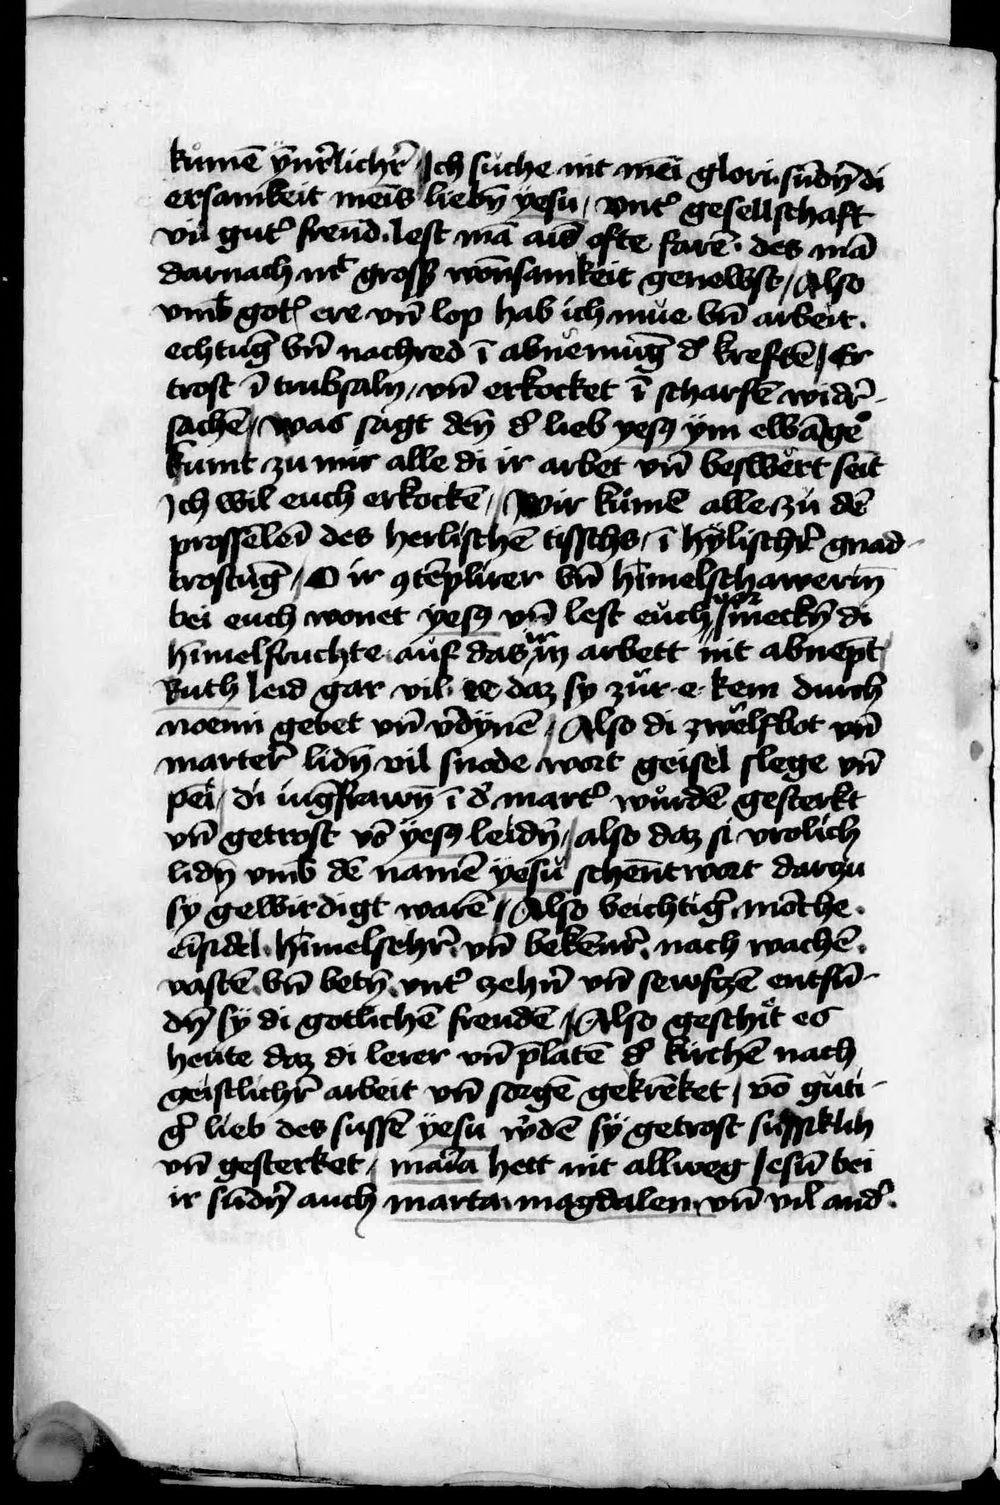 kůmē ÿnr̄lichr̄ / Ich sůche nit mēi glori. sūdn̄ di
ersamkeit meīs liebn̄ yesu / vnt᷒ gesellschaft
vn̄ gut᷒ freūd. lest mā aus ofte farē. des mā
darnach mit grosß wonsamkeit genewst / Also
vmb got᷒ ere vn̄ lop hab ich můe vn̄ arbeit.
echtūg vn̄ nachred ī abnemūg d᷒ kreftē / Er
trost ī trubsaln / vn̄ erkocket ī scharfē widr̄-
sachē / was sagt den̄ d᷒ lieb yesꝯ ym ewāgeº
kumt zu mir alle di ir arbet vn̄ beswert seit
Ich wil euch erkockē / Wir kůmē alle zu dē
prossēleī des herlischē tisschs / ī hÿlischr̄ gnad-
trostūg / O ir ꝯtēplirer vn̄ himelschawerin̄
bei euch wonet yesꝯ vn̄ lest euch vor smeckn̄ di
himelfruchte auf das ir in arbett nit abnept
Ruth leid gar vil ee daz sy zůr e kem durch
noemi gebet vn̄ v᷒dÿnē / Also di zwelfbot vn̄
marter᷒ lidn̄ vil snode wort geisel slege vn̄
pei / di iūgfrawn̄ ī d᷒ mart᷒ wůrdē gesterkt
vn̄ getrost vō ÿesꝯ leidn̄ / also daz si vrolich
lidn̄ vmb dē namē yesu schent wort darzu
sy gewirdigt warē / Also beichtig᷒ mōche.
eīsidel. himelsehr̄. vn̄ bekēnr̄. nach wachē.
vastē. vn̄ betn̄. vnt᷒ zehn̄ vn̄ sewfzē entfū-
dn̄ sÿ di gotlichē freudē / Also geschit es
heute daz di lerer vn̄ p̄latē d᷒ kirchē nach
geistlichr̄ arbeit vn̄ sorgē gekrēket / vō guti-
g᷒ lieb des sussē yesu w᷒dē sÿ getrost sussiklih
vn̄ gesterket / maria hett nit allweg Jesū bei
ir sūdn̄ auch marta. magdalen. vn̄ vil and᷒.